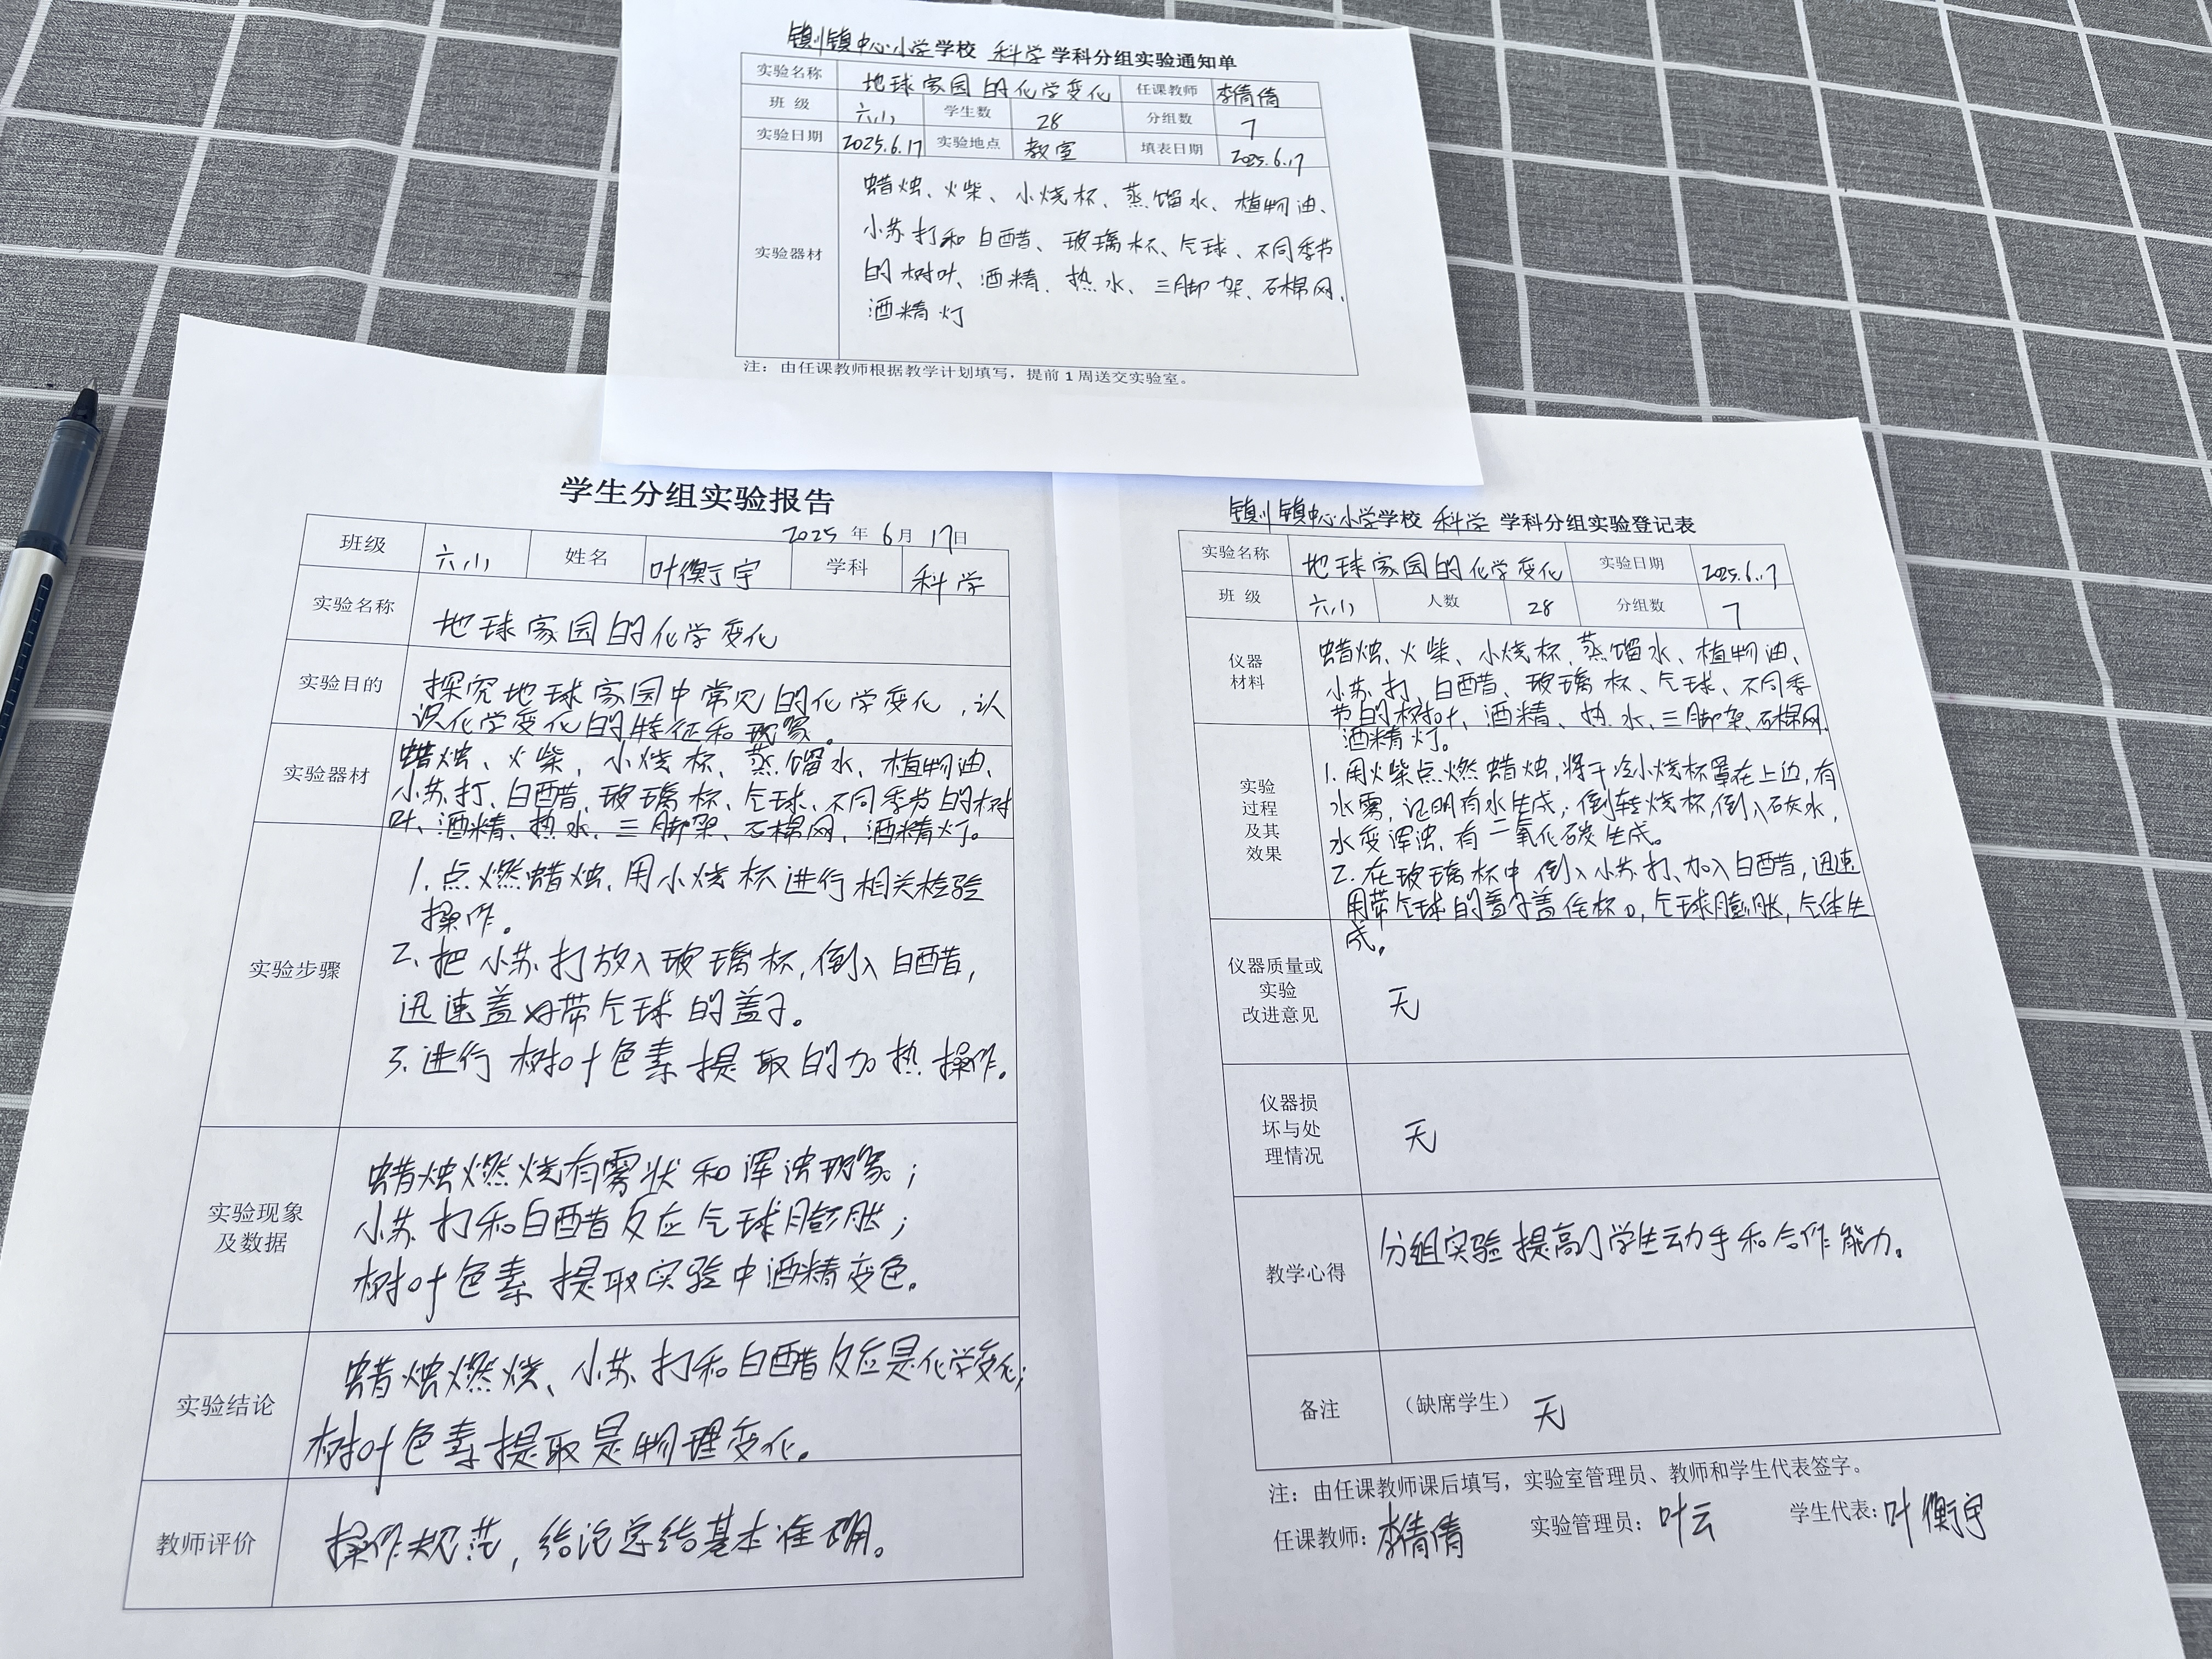 镇川镇中心小学学校 科学 学科分组实验通知单
实验名称 地球家园的化学变化 任课教师 李倩倩
班 级 六(1) 学生数 28 分组数 7
实验日期 2025.6.17 实验地点 教室 填表日期 2025.6.17
实验器材
蜡烛、火柴、小烧杯、蒸馏水、植物油、
小苏打和白醋、玻璃杯、气球、不同季节
的树叶、酒精、热水、三脚架、石棉网、
酒精灯
注：由任课教师根据教学计划填写，提前 1 周送交实验室。
学生分组实验报告
2025 年 6 月 17 日
班级 六(1) 姓名 叶衡宇 学科 科学
实验名称 地球家园的化学变化
实验目的 探究地球家园中常见的化学变化，认
识化学变化的特征和现象。
实验器材 蜡烛、火柴、小烧杯、蒸馏水、植物油、
小苏打、白醋、玻璃杯、气球、不同季节的树
叶、酒精、热水、三脚架、石棉网、酒精灯。
实验步骤
1.点燃蜡烛，用小烧杯进行相关检验
操作。
2.把小苏打放入玻璃杯，倒入白醋，
迅速盖好带气球的盖子。
3.进行树叶色素提取的加热操作。
实验现象
及数据
蜡烛燃烧有雾状和浑浊现象；
小苏打和白醋反应气球膨胀；
树叶色素提取实验中酒精变色。
实验结论
蜡烛燃烧、小苏打和白醋反应是化学变化；
树叶色素提取是物理变化。
教师评价 操作规范，结论总结基本准确。
镇川镇中心小学学校 科学 学科分组实验登记表
实验名称 地球家园的化学变化 实验日期 2025.6.17
班 级 六(1) 人数 28 分组数 7
仪器
材料
蜡烛、火柴、小烧杯、蒸馏水、植物油、
小苏打、白醋、玻璃杯、气球、不同季
节的树叶、酒精、热水、三脚架、石棉网、
酒精灯。
实验
过程
及其
效果
1.用火柴点燃蜡烛，将干冷小烧杯罩在上边，有
水雾，证明有水生成；倒转烧杯，倒入石灰水，
水变浑浊，有二氧化碳生成。
2.在玻璃杯中倒入小苏打、加入白醋，迅速
用带气球的盖子盖住杯口，气球膨胀，气体生
成。
仪器质量或
实验
改进意见
无
仪器损
坏与处
理情况
无
教学心得 分组实验提高了学生动手和合作能力。
备注 （缺席学生） 无
注：由任课教师课后填写，实验室管理员、教师和学生代表签字。
任课教师：李倩倩 实验管理员：叶云 学生代表：叶衡宇